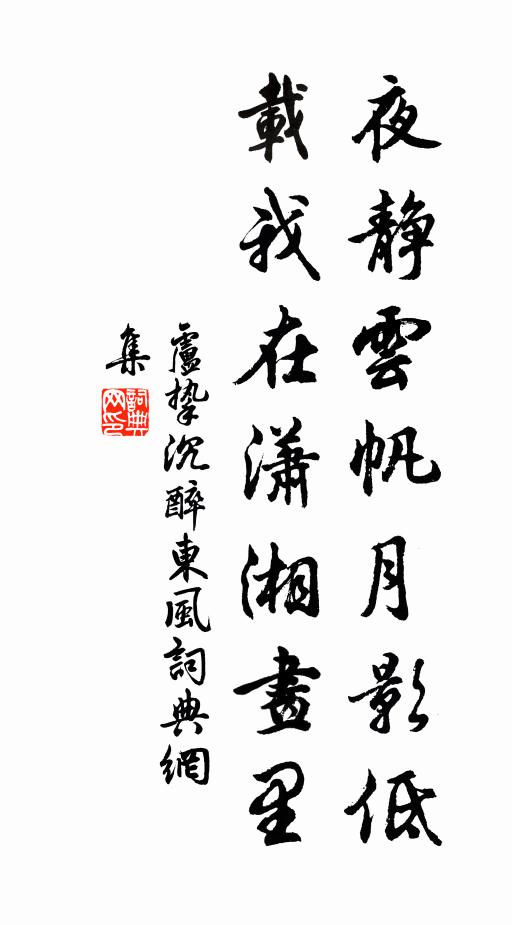 夜静雲帆月影低
載我在瀟湘畫里
盧摯沉醉東風詞典網
集
詞典网印